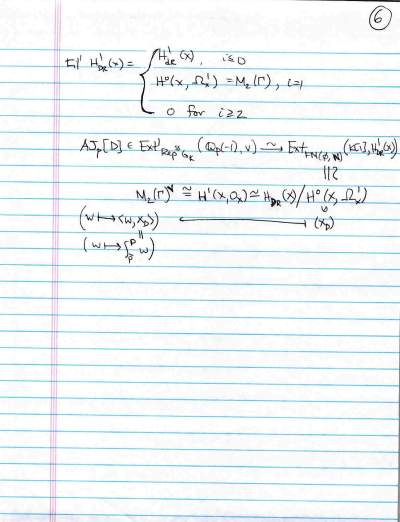 6
Fil^i H^1_{DR}(X) = { H^1_{dR}(X), i≤0
H^0(X, Ω^1_X) = M_2(Γ), i=1
0 for i≥2
AJ_p[D] ∈ Ext^1_{Rep G_K} (Q_p(-1), V) ~→ Ext_{FM(φ,N)} (K[1], H^1_{DR}(X))
M_2(Γ)^v ≅ H^1(X, O_X) ≃ H_{DR}(X) / H^0(X, Ω^1_X)
(ω ↦ <ω, X_D>) ⟷ (X_D)
(ω ↦ ∫ ω)